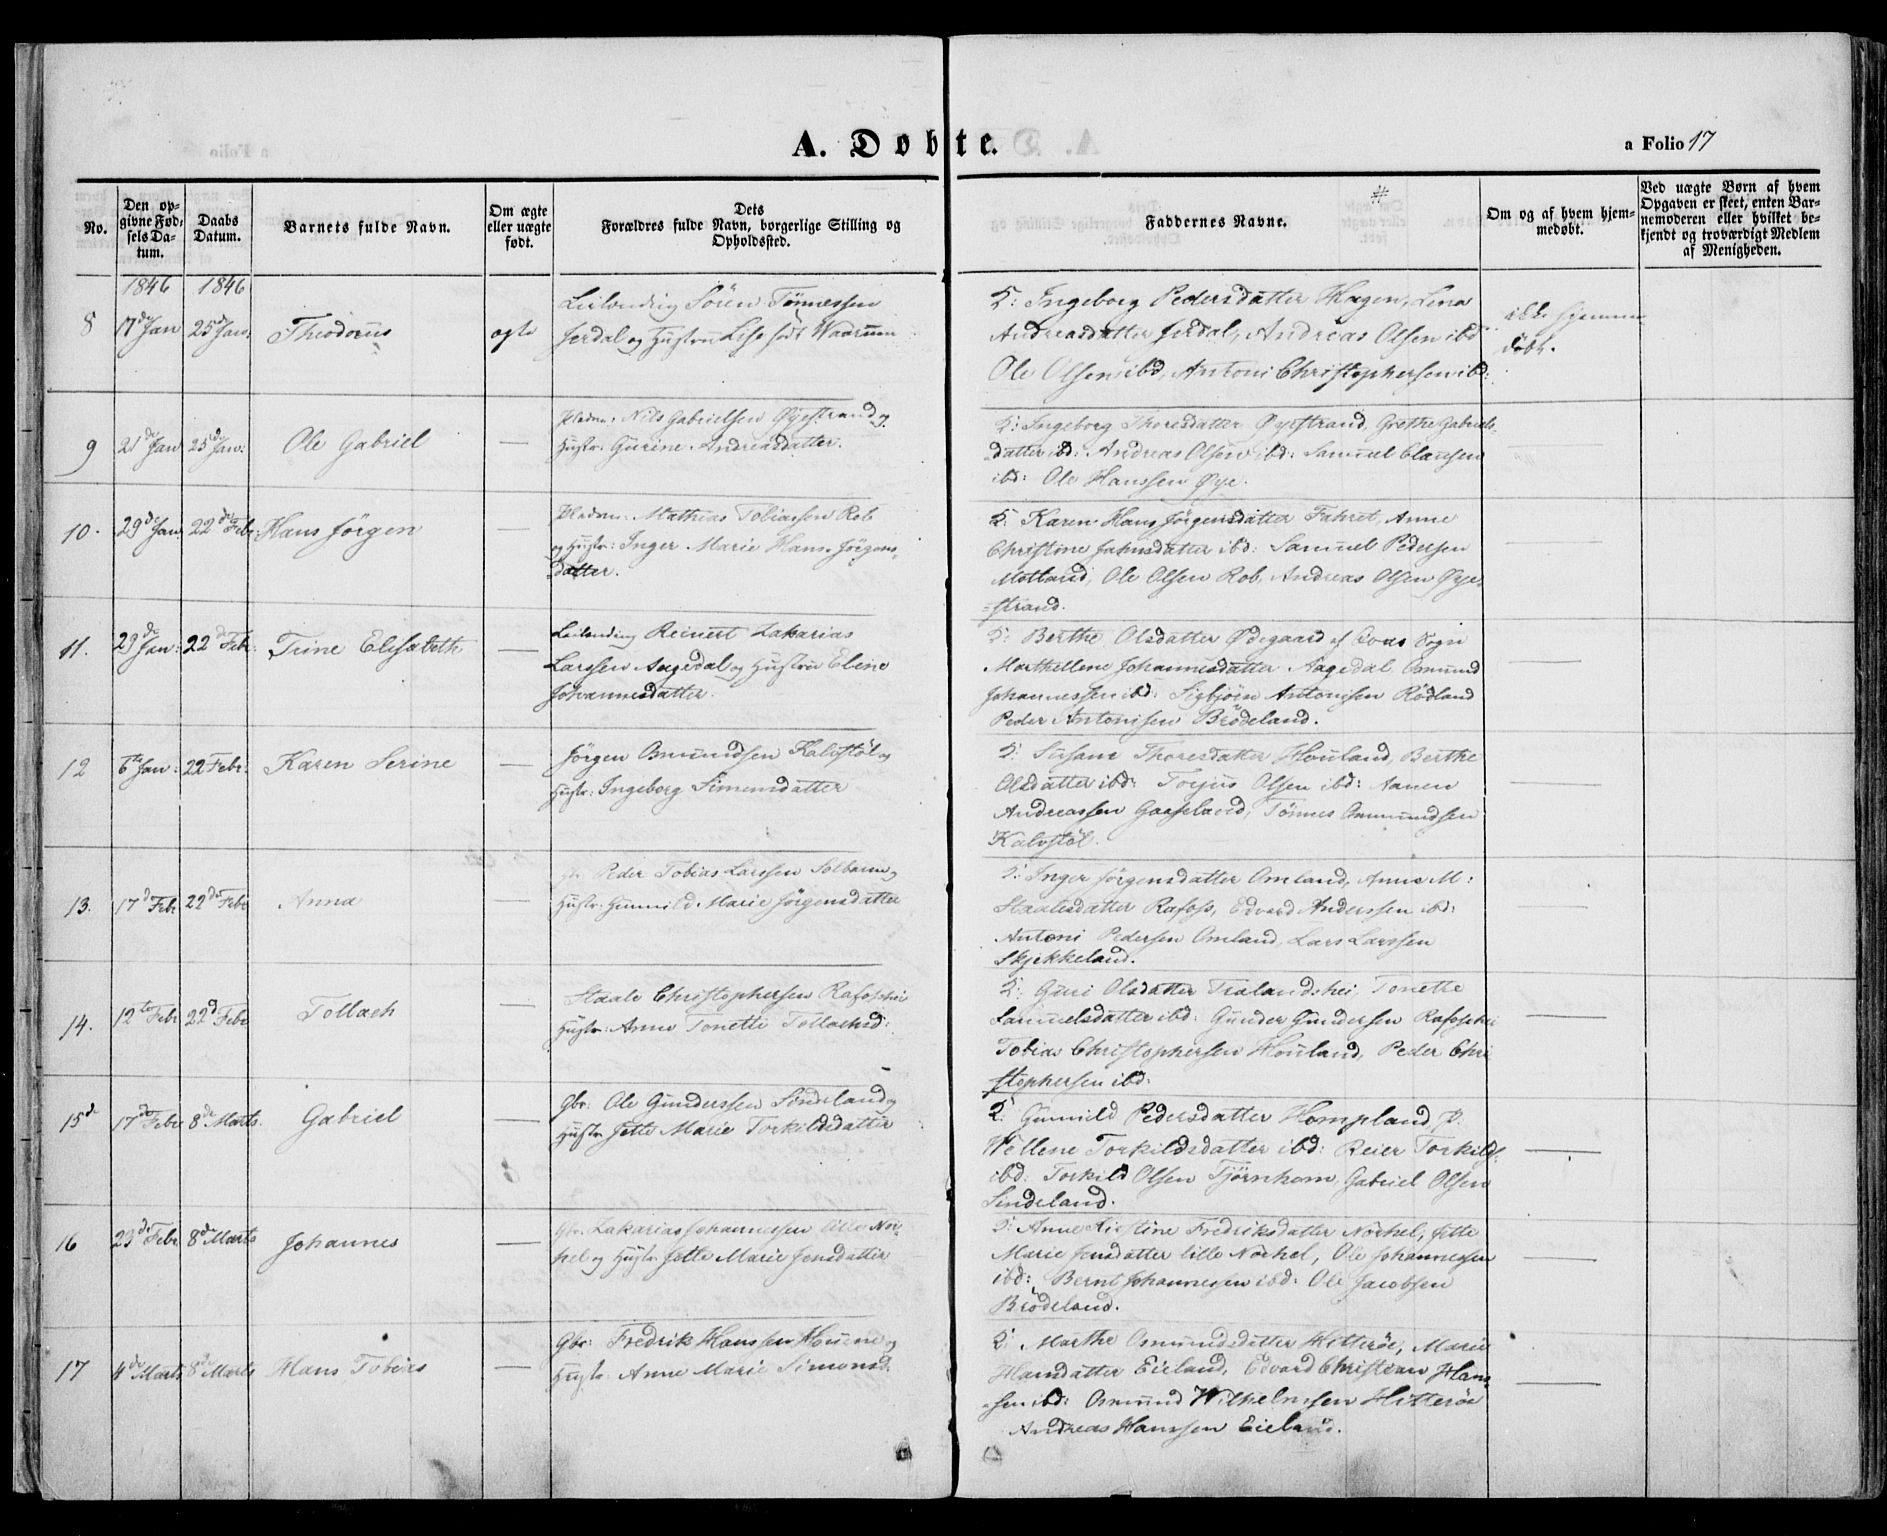 A. Døbte.
a Folio 17
No.
Den op-
givne Fød-
sels Da-
tum.
Daabs
Datum.
Barnets fulde Navn.
Om ægte
eller uægte
født.
Dets
Forældres fulde Navn, borgerlige Stilling og
Opholdssted.
Faddernes Navne.
Om og af hvem hjem-
medøbt.
Ved uægte Børn af hvem
Opgaven er skeet, enten Bar-
nemoderen eller hvilket be-
kjendt og troværdigt Medlem
af Menigheden.
1846 1846
8 17de Jan 25de Jan: Theodorus ægte
Leilending Sören Tönnessen
Jerdal og Hustru Lise født Waarum
2: Ingeborg Pedersdatter Hagen, Lena
Andreasdatter Jerdal, Andreas Olsen ibd
Ole Olsen ibd, Antoni Christophersen ibd:
ikke hjemme
døbt.
9 21de Jan 25de Jan: Ole Gabriel —
Pladsm: Nils Gabrielsen Øyestrand og
Hustr: Gurine Andreasdatter.
2: Ingeborg Thoresdatter Øyestrand, Grethe Gabriels
datter ibd: Andreas Olsen ibd: Samuel Clausen
ibd: Ole Hanssen Øye.
10. 29de Jan 22de Febr: Hans Jörgen —
Pladsm: Mathias Tobiassen Rob
og Hustr: Inger Marie Hans Jörgens-
datter.
2: Karen Hans Jörgensdatter Fahret, Anne
Christine Jahnsdatter ibd: Samuel Pedersen
Motland, Ole Olsen Rob, Andreas Olsen Øye
=strand.
11. 29de Jan: 22de Febr: Trine Elisabeth —
Leilending Reinert Zakarias
Larssen Aagedal og Hustru Eline
Johannesdatter.
2: Berthe Olsdatter Ødegaard af Qvas Sogn
Marthellene Johannesdatter Aagedal, Osmund
Johannessen ibd: Sigbjörn Antonisen Rödland
Peder Antonisen Brödeland.
12 6te Jan: 22 Febr: Karen Serine —
Jörgen Osmundsen Kalvstöl og
Hustr: Ingeborg Simonsdatter
2: Susane Thoresdatter Houland, Berthe
Olsdatter ibd: Torjus Olsen ibd: Aanen
Andreassen Gaaseland, Tönnes Ommundsen
Kalvstöl.
13. 17de Febr 22de Febr Anna —
Peder Tobias Larssen Solbarm og
Hustr: Gunnild Marie Jörgensdatter
2: Inger Jörgensdatter Omland, Anne M:
Staalesdatter Rafoss, Edvard Anderssen ibd:
Antoni Pedersen Omland, Lars Larssen
Skjekkeland.
14. 12te Febr 22d Febr Tollach —
Staale Christophersen Rafoshei
Hustr: Anne Tonette Tollachsd:
2: Guri Olsdatter Trælandshei, Tonette
Samuelsdatter ibd: Gunder Gundersen Rafoshei
Tobias Christophersen Houland, Peder Chri
stophersen ibd:
15de 17de Febr 8de Marts. Gabriel
Gbr: Ole Gunderssen Sindeland og
Hustr Jette Marie Torkildsdatter
2: Gunnild Pedersdatter Hompland P:
Wellene Torkildsdatter ibd: Reier Torkilds:
ibd: Torkild Olsen Tjörnhom, Gabriel Olsen
Sindeland.
16 23de Febr 8de Marts Johannes —
Gbr. Zakarias Johannessen lille Nör-
hel og Hustr Jette Marie Jensdatter
2: Anne Kirstine Fredriksdatter Nörhel, Jette
Marie Jensdatter lille Nörhel, Ole Johannessen
ibd: Bernt Johannessen ibd: Ole Jacobsen
Brödeland.
17 4de Marts 8de Marts Hans Tobias —
Gbr: Fredrik Hanssen Houene og
Hustr: Anne Marie Simonsd:
2: Marthe Osmundsdatter Hitteröe, Marie
Hansdatter Eieland, Edvard Christian Hans-
sen ibd: Osmund Wilhelmsen Hitteröe
Andreas Hanssen Eieland.